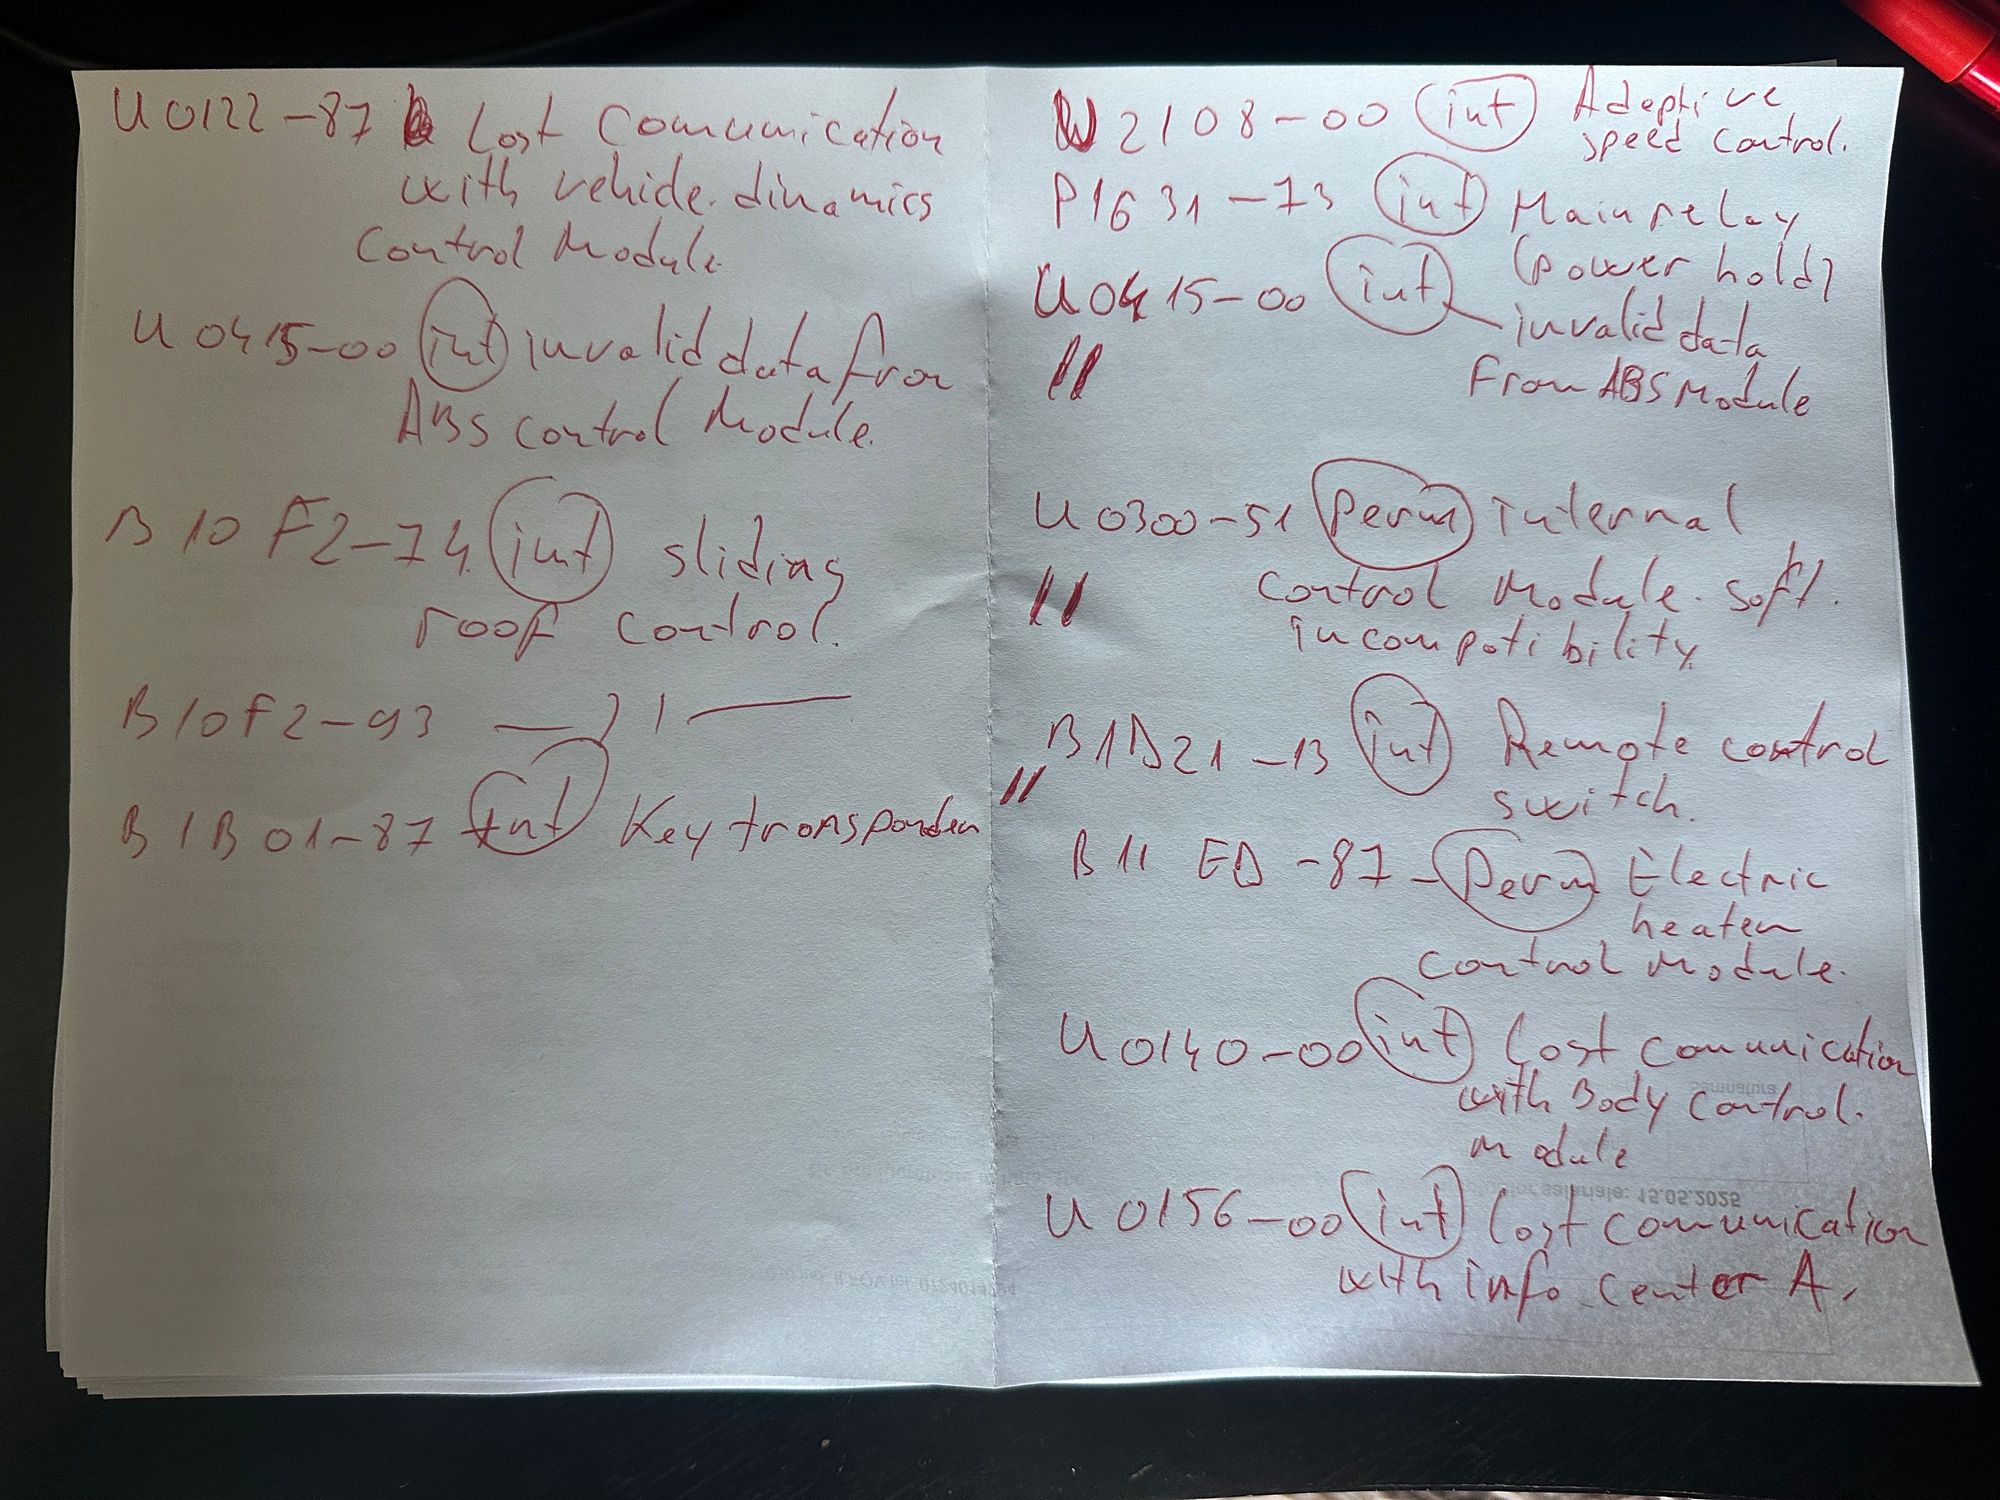 U0122-87 Lost Comunication
with vehicle dinamics
Control Module.
U0415-00 int invalid data from
ABS control Module.
B10F2-74 int sliding
roof control.
B10F2-93 — 11 —
B1B01-87 int Key transponder
U2108-00 int Adaptive
speed control.
P1631-73 int Main relay
(power hold)
U0415-00 int invalid data
" From ABS Module
U0300-51 perm internal
" control Module soft.
incompatibility.
B1D21-13 int Remote control
" switch.
B11ED-87 - perm Electric
heater
control Module.
U0140-00 int Lost comunication
with Body control.
module
U0156-00 int Lost comunication
with info center A.